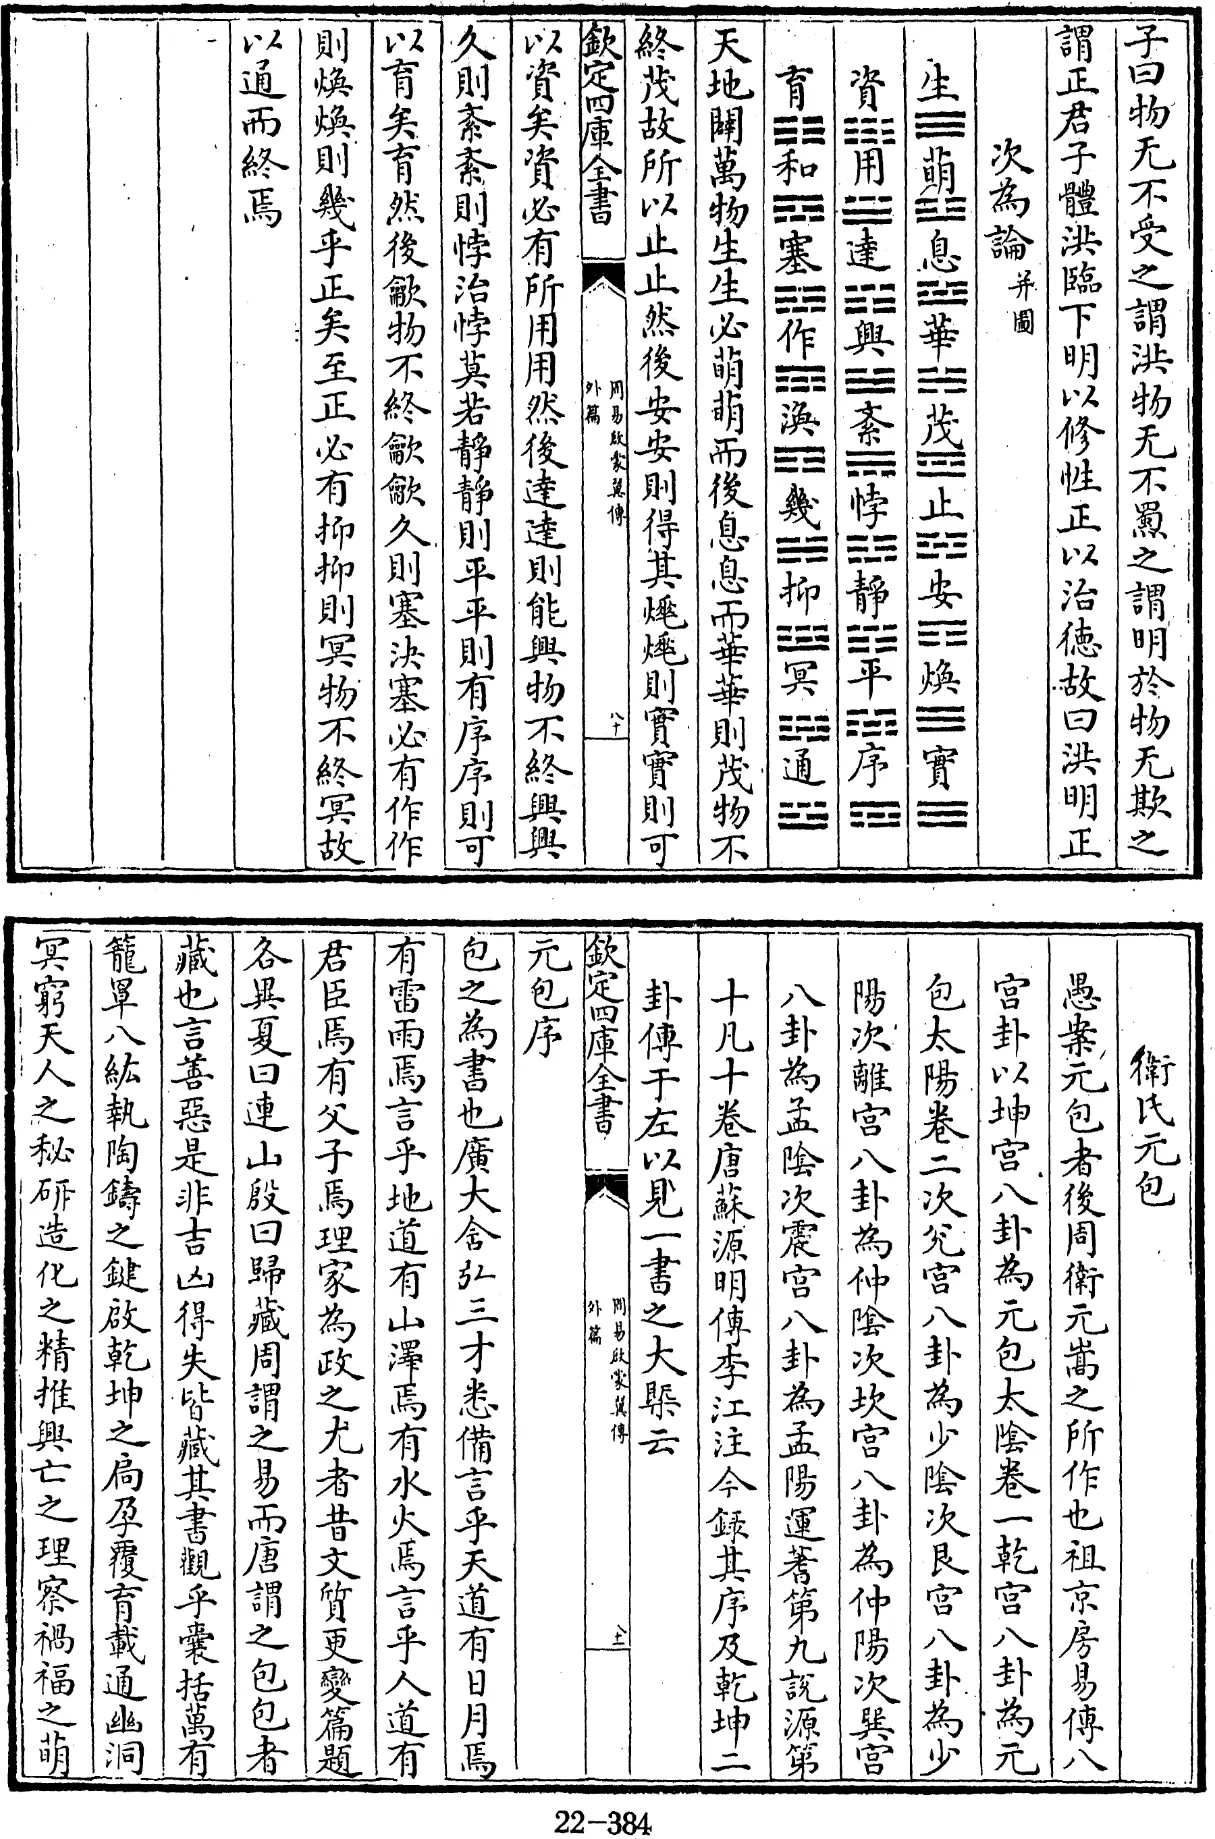 子曰物无不受之謂洪物无不蠲之謂明於物无欺之
謂正君子體洪臨下明以修性正以治德故曰洪明正
次為論并圖
生萌息華茂止安煥實
資用達興紊悖靜平序
育和塞作渙幾抑冥通
天地闢萬物生生必萌萌而後息息而華華則茂物不
終茂故所以止止然後安安則得其𤍞𤍞則實實則可
欽定四庫全書
周易啟蒙翼傳
外篇
八十
以資矣資必有所用用然後達達則能興物不終興興
久則紊紊則悖治悖莫若靜靜則平平則有序序則可
以育矣育然後龢物不終龢龢久則塞決塞必有作作
則煥煥則幾乎正矣至正必有抑抑則冥物不終冥故
以通而終焉
衛氏元包
愚案元包者後周衛元嵩之所作也祖京房易傳八
宮卦以坤宮八卦為元包太陰卷一乾宮八卦為元
包太陽卷二次兌宮八卦為少陰次艮宮八卦為少
陽次離宮八卦為仲陰次坎宮八卦為仲陽次巽宮
八卦為孟陰次震宮八卦為孟陽運蓍第九說源第
十凡十卷唐蘇源明傳李江注今録其序及乾坤二
卦傳于左以見一書之大槩云
欽定四庫全書
周易啟蒙翼傳
外篇
八十一
元包序
包之為書也廣大含弘三才悉備言乎天道有日月焉
有雷雨焉言乎地道有山澤焉有水火焉言乎人道有
君臣焉有父子焉理家為政之尤者昔文質更變篇題
各異夏曰連山殷曰歸藏周謂之易而唐謂之包包者
藏也言善惡是非吉凶得失皆藏其書觀乎囊括萬有
籠罩八紘執陶鑄之鍵啟乾坤之扃孕覆育載通幽洞
冥窮天人之秘研造化之精推興亡之理察禍福之萌
22-384